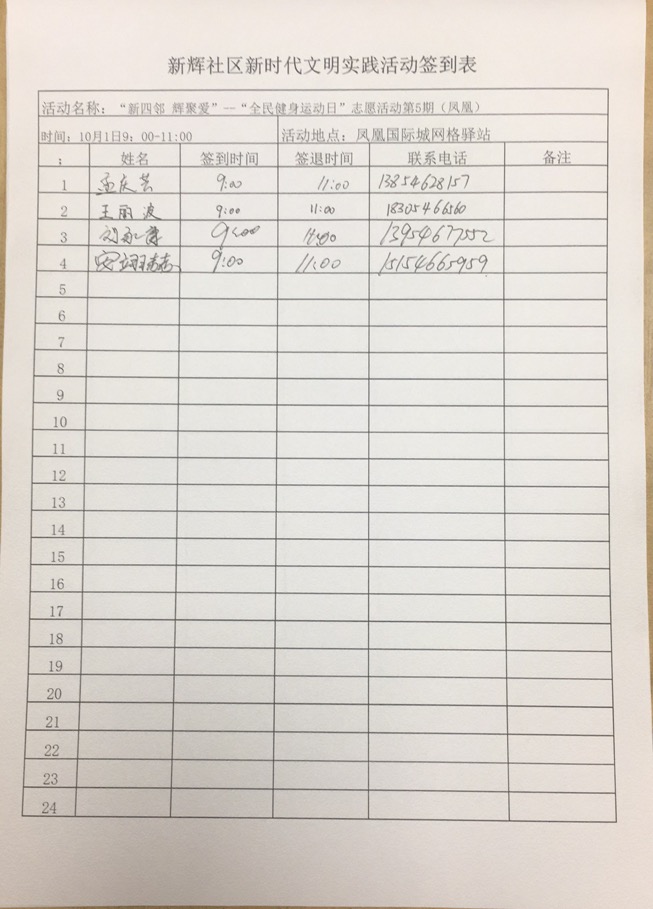 新辉社区新时代文明实践活动签到表
活动名称：“新四邻 辉聚爱”--“全民健身运动日”志愿活动第5期（凤凰）
时间：10月1日9：00-11:00 活动地点：凤凰国际城网格驿站
： 姓名 签到时间 签退时间 联系电话 备注
1 孟庆芸 9:00 11:00 13854628157
2 王丽波 9:00 11:00 18305466560
3 9:00 11:00 13954677552
4 9:00 11:00 15154665959
5
6
7
8
9
10
11
12
13
14
15
16
17
18
19
20
21
22
23
24